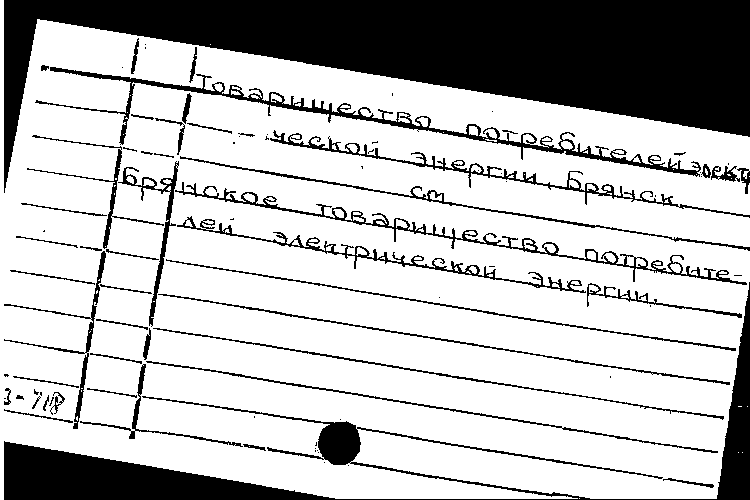 Товарищество потребителей элект
ческой энергии, Брянск.
см.
Брянское товарищество потребите-
лей электрической энергии.